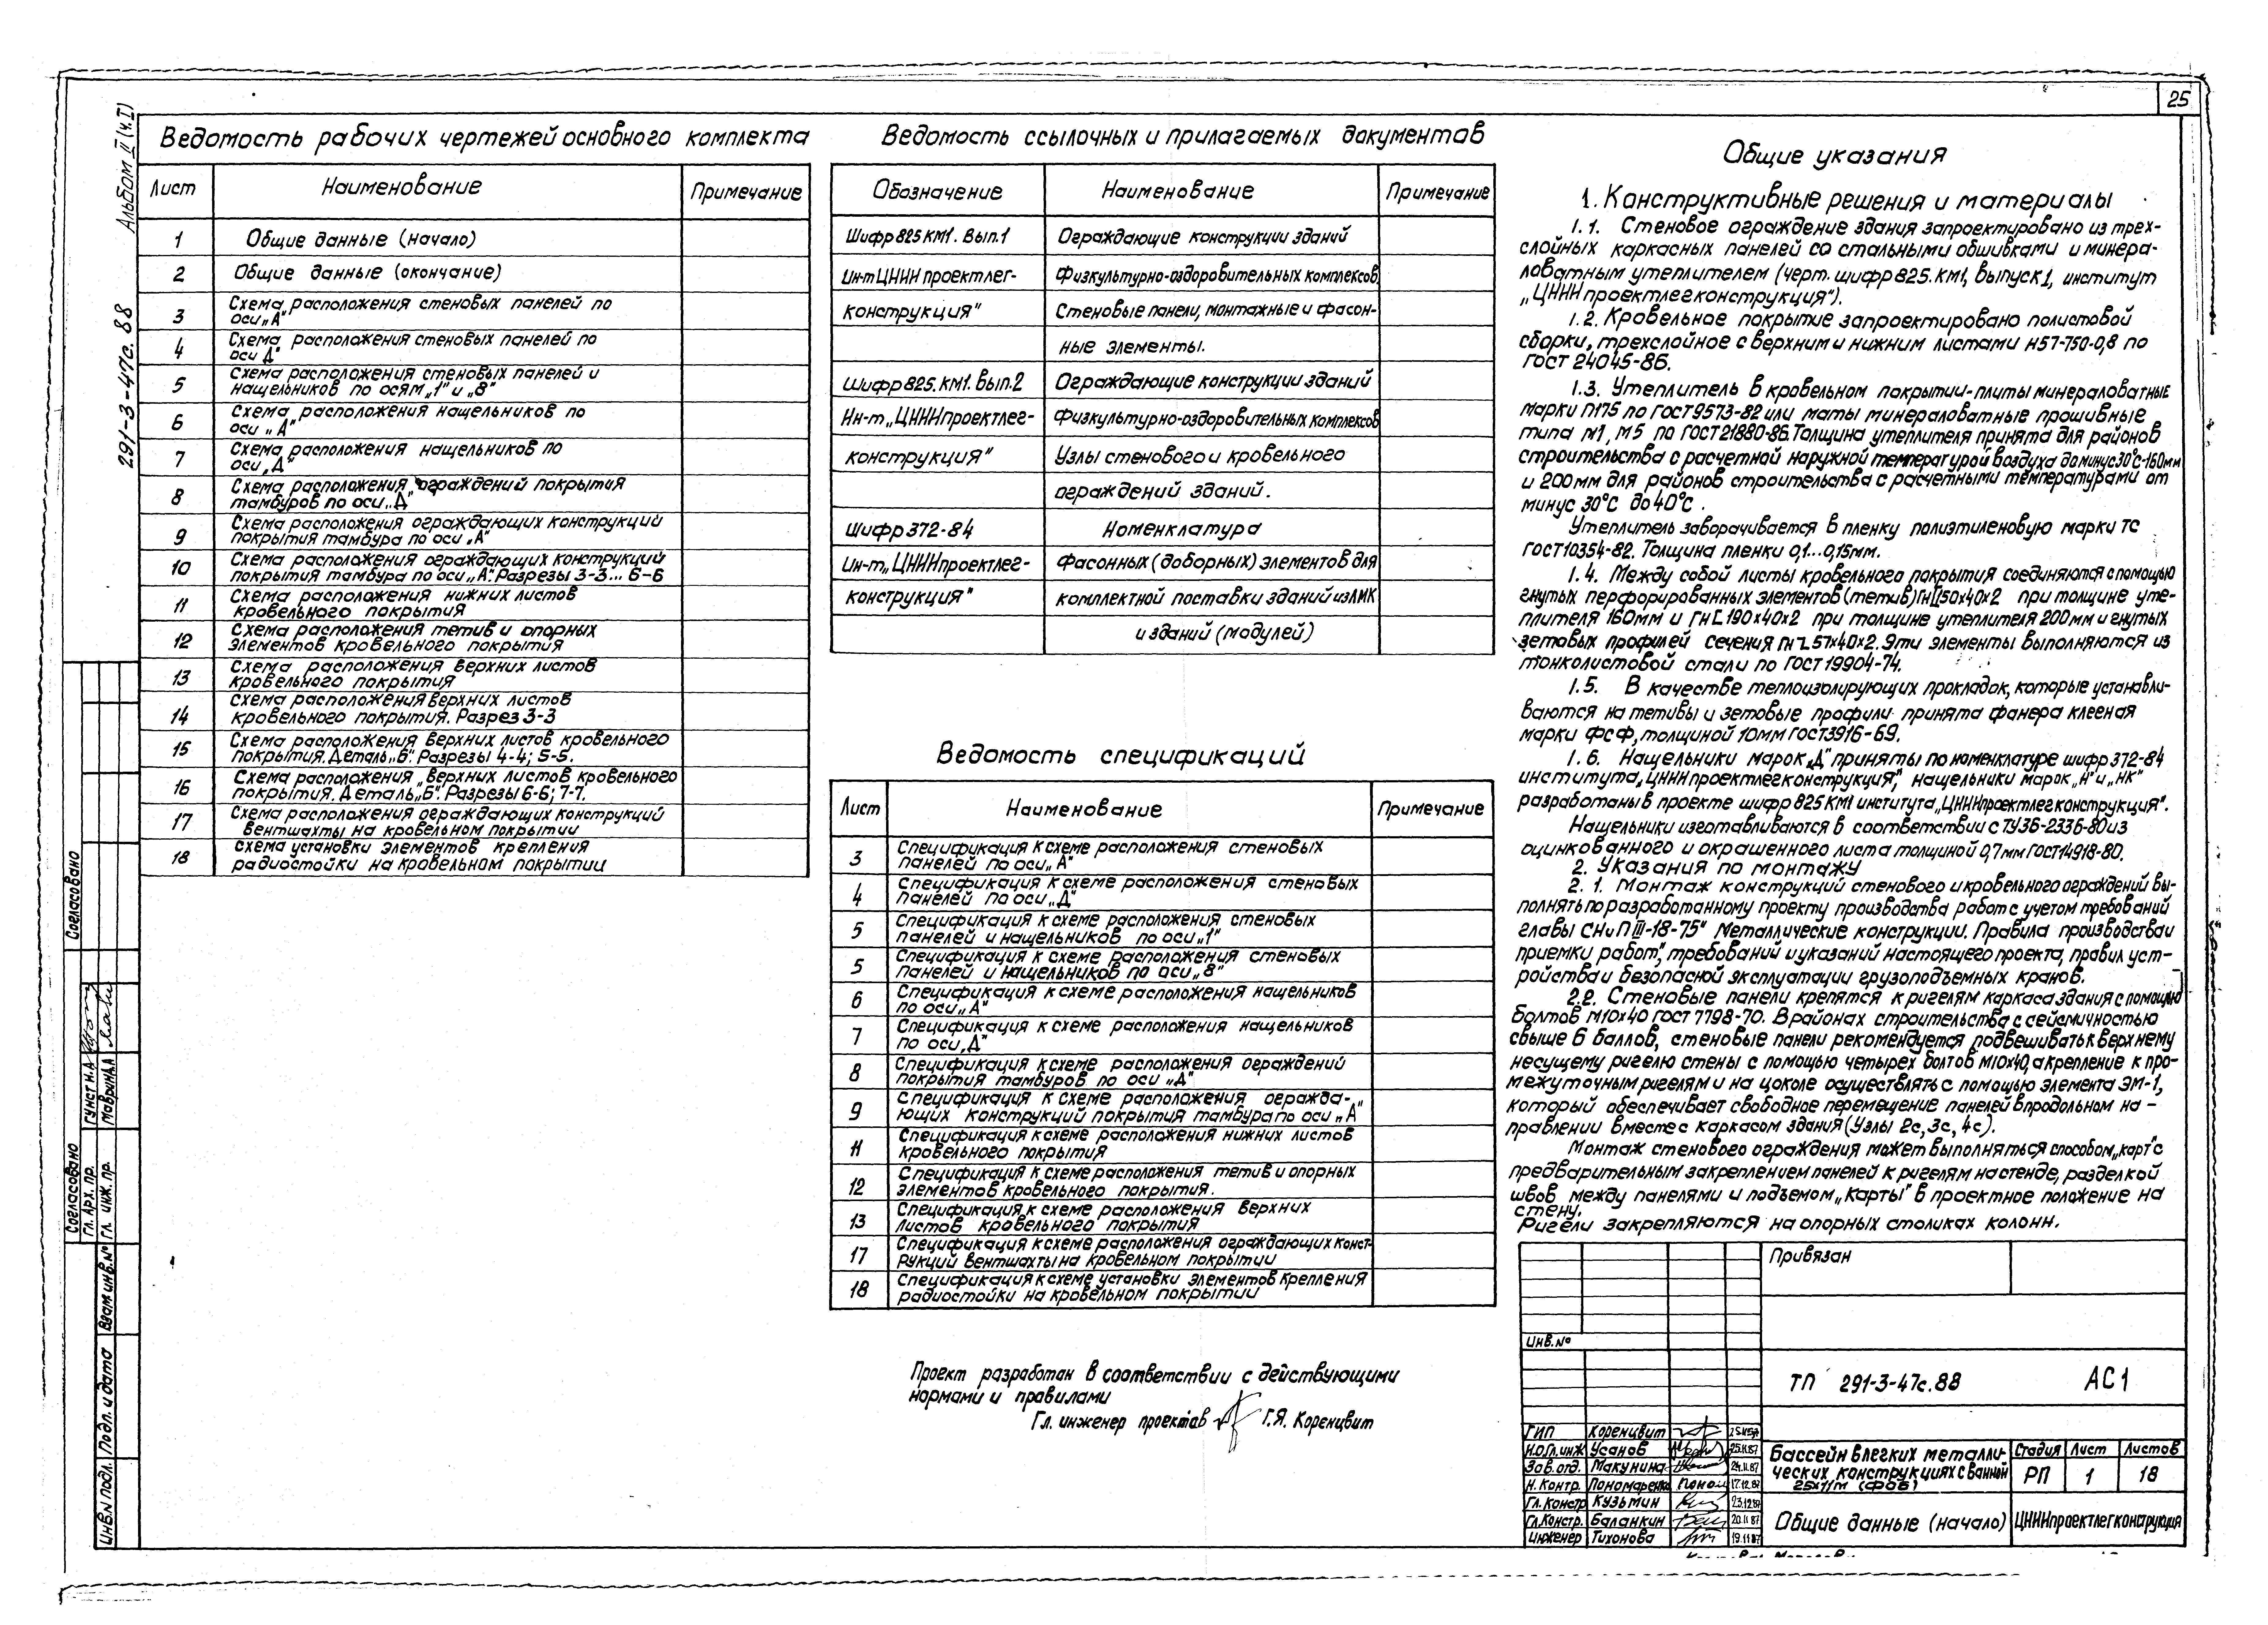 25
Альбом II (ч.I)
291-3-47с. 88
Ведомость рабочих чертежей основного комплекта
Лист Наименование Примечание
1 Общие данные (начало)
2 Общие данные (окончание)
3 Схема расположения стеновых панелей по
оси „А"
4 Схема расположения стеновых панелей по
оси Д"
5 Схема расположения стеновых панелей и
нащельников по осям „1" и „8"
6 Схема расположения нащельников по
оси „А"
7 Схема расположения нащельников по
оси „Д"
8 Схема расположения ограждений покрытия
тамбуров по оси „Д"
9 Схема расположения ограждающих конструкций
покрытия тамбура по оси „А"
10 Схема расположения ограждающих конструкций
покрытия тамбура по оси „А". Разрезы 3-3... 6-6
11 Схема расположения нижних листов
кровельного покрытия
12 Схема расположения тетив и опорных
элементов кровельного покрытия
13 Схема расположения верхних листов
кровельного покрытия
14 Схема расположения верхних листов
кровельного покрытия. Разрез 3-3
15 Схема расположения верхних листов кровельного
покрытия. Деталь „Б". Разрезы 4-4; 5-5.
16 Схема расположения верхних листов кровельного
покрытия. Деталь „Б". Разрезы 6-6; 7-7.
17 Схема расположения ограждающих конструкций
вентшахты на кровельном покрытии
18 Схема установки элементов крепления
радиостойки на кровельном покрытии
Ведомость ссылочных и прилагаемых документов
Обозначение Наименование Примечание
Шифр 825 КМ1. Вып.1 Ограждающие конструкции зданий
Ин-т ЦНИИпроектлег- Физкультурно-оздоровительных комплексов
конструкция" Стеновые панели, монтажные и фасон-
ные элементы.
Шифр 825. КМ1. Вып.2 Ограждающие конструкции зданий
Ин-т „ЦНИИпроектлег- Физкультурно-оздоровительных комплексов
конструкция" Узлы стенового и кровельного
ограждений зданий.
Шифр 372-84 Номенклатура
Ин-т „ЦНИИпроектлег- Фасонных (доборных) элементов для
конструкция" комплектной поставки зданий из ЛМК
и зданий (модулей)
Ведомость спецификаций
Лист Наименование Примечание
3 Спецификация к схеме расположения стеновых
панелей по оси „А"
4 Спецификация к схеме расположения стеновых
панелей по оси „Д"
5 Спецификация к схеме расположения стеновых
панелей и нащельников по оси „1"
5 Спецификация к схеме расположения стеновых
панелей и нащельников по оси „8"
6 Спецификация к схеме расположения нащельников
по оси „А"
7 Спецификация к схеме расположения нащельников
по оси „Д"
8 Спецификация к схеме расположения ограждений
покрытия тамбуров по оси „Д"
9 Спецификация к схеме расположения огражда-
ющих конструкций покрытия тамбура по оси „А"
11 Спецификация к схеме расположения нижних листов
кровельного покрытия
12 Спецификация к схеме расположения тетив и опорных
элементов кровельного покрытия.
13 Спецификация к схеме расположения верхних
листов кровельного покрытия
17 Спецификация к схеме расположения ограждающих конст-
рукций вентшахты на кровельном покрытии
18 Спецификация к схеме установки элементов крепления
радиостойки на кровельном покрытии
Проект разработан в соответствии с действующими
нормами и правилами
Гл. инженер проектов Г.Я. Коренцвит
Общие указания
1. Конструктивные решения и материалы
1.1. Стеновое ограждение здания запроектировано из трех-
слойных каркасных панелей со стальными обшивками и минера-
ловатным утеплителем (черт. шифр 825. КМ1, выпуск 1, институт
„ЦНИИпроектлегконструкция").
1.2. Кровельное покрытие запроектировано полистовой
сборки, трехслойное с верхним и нижним листами Н57-750-0,8 по
ГОСТ 24045-86.
1.3. Утеплитель в кровельном покрытии-плиты минераловатные
марки П175 по ГОСТ 9573-82 или маты минераловатные прошивные
типа М1, М5 по ГОСТ 21880-86. Толщина утеплителя принята для районов
строительства с расчетной наружной температурой воздуха до минус 30°С-160мм
и 200мм для районов строительства с расчетными температурами от
минус 30°С до 40°С.
Утеплитель заворачивается в пленку полиэтиленовую марки ТС
ГОСТ 10354-82. Толщина пленки 0,1...0,15мм.
1.4. Между собой листы кровельного покрытия соединяются с помощью
гнутых перфорированных элементов (тетив) Гн[150х40х2 при толщине уте-
плителя 160мм и Гн[190х40х2 при толщине утеплителя 200мм и гнутых
зетовых профилей сечения Гн Z 57х40х2. Эти элементы выполняются из
тонколистовой стали по ГОСТ 19904-74.
1.5. В качестве теплоизолирующих прокладок, которые устанавли-
ваются на тетивы и зетовые профили принята фанера клееная
марки ФСФ, толщиной 10мм ГОСТ 3916-69.
1.6. Нащельники марок „Д" приняты по номенклатуре шифр 372-84
института „ЦНИИпроектлегконструкция", нащельники марок „Н" и „НК"
разработаны в проекте шифр 825 КМ1 института „ЦНИИпроектлегконструкция".
Нащельники изготавливаются в соответствии с ТУ36-2336-80 из
оцинкованного и окрашенного листа толщиной 0,7мм ГОСТ 14918-80.
2. Указания по монтажу
2.1. Монтаж конструкций стенового и кровельного ограждений вы-
полнять по разработанному проекту производства работ с учетом требований
главы СНиП III-18-75" Металлические конструкции. Правила производства и
приемки работ", требований и указаний настоящего проекта, правил уст-
ройства и безопасной эксплуатации грузоподъемных кранов.
2.2. Стеновые панели крепятся к ригелям каркаса здания с помощью
болтов М10х40 ГОСТ 7798-70. В районах строительства с сейсмичностью
свыше 6 баллов, стеновые панели рекомендуется подвешивать к верхнему
несущему ригелю стены с помощью четырех болтов М10х40, а крепление к про-
межуточным ригелям и на цоколе осуществлять с помощью элемента ЭМ-1,
который обеспечивает свободное перемещение панелей в продольном на-
правлении вместе с каркасом здания (Узлы 2с, 3с, 4с).
Монтаж стенового ограждения может выполняться способом „карт" с
предварительным закреплением панелей к ригелям на стенде, разделкой
швов между панелями и подъемом „карты" в проектное положение на
стену.
Ригели закрепляются на опорных столиках колонн.
Привязан
Инв.№
ТП 291-3-47с.88 АС1
ГИП Коренцвит
Н.О.Гл.инж Усанов 25.11.87
Зав.отд. Макунина 24.11.87
Н.Контр. Пономаренко 17.12.87
Гл.Констр Кузьмин 23.12.87
Гл.Констр. Баланкин 20.11.87
Инженер Тихонова 19.11.87
Бассейн в легких металли-
ческих конструкциях с ванной
25х11м (ФОБ)
Стадия Лист Листов
РП 1 18
Общие данные (начало)
ЦНИИпроектлегконструкция
Согласовано
Согласовано
Гл. Арх. пр. Гунст Н.А
Гл. инж. пр. Маврин А.А
Взам.инв.№
Подп. и дата
Инв.№ подл.